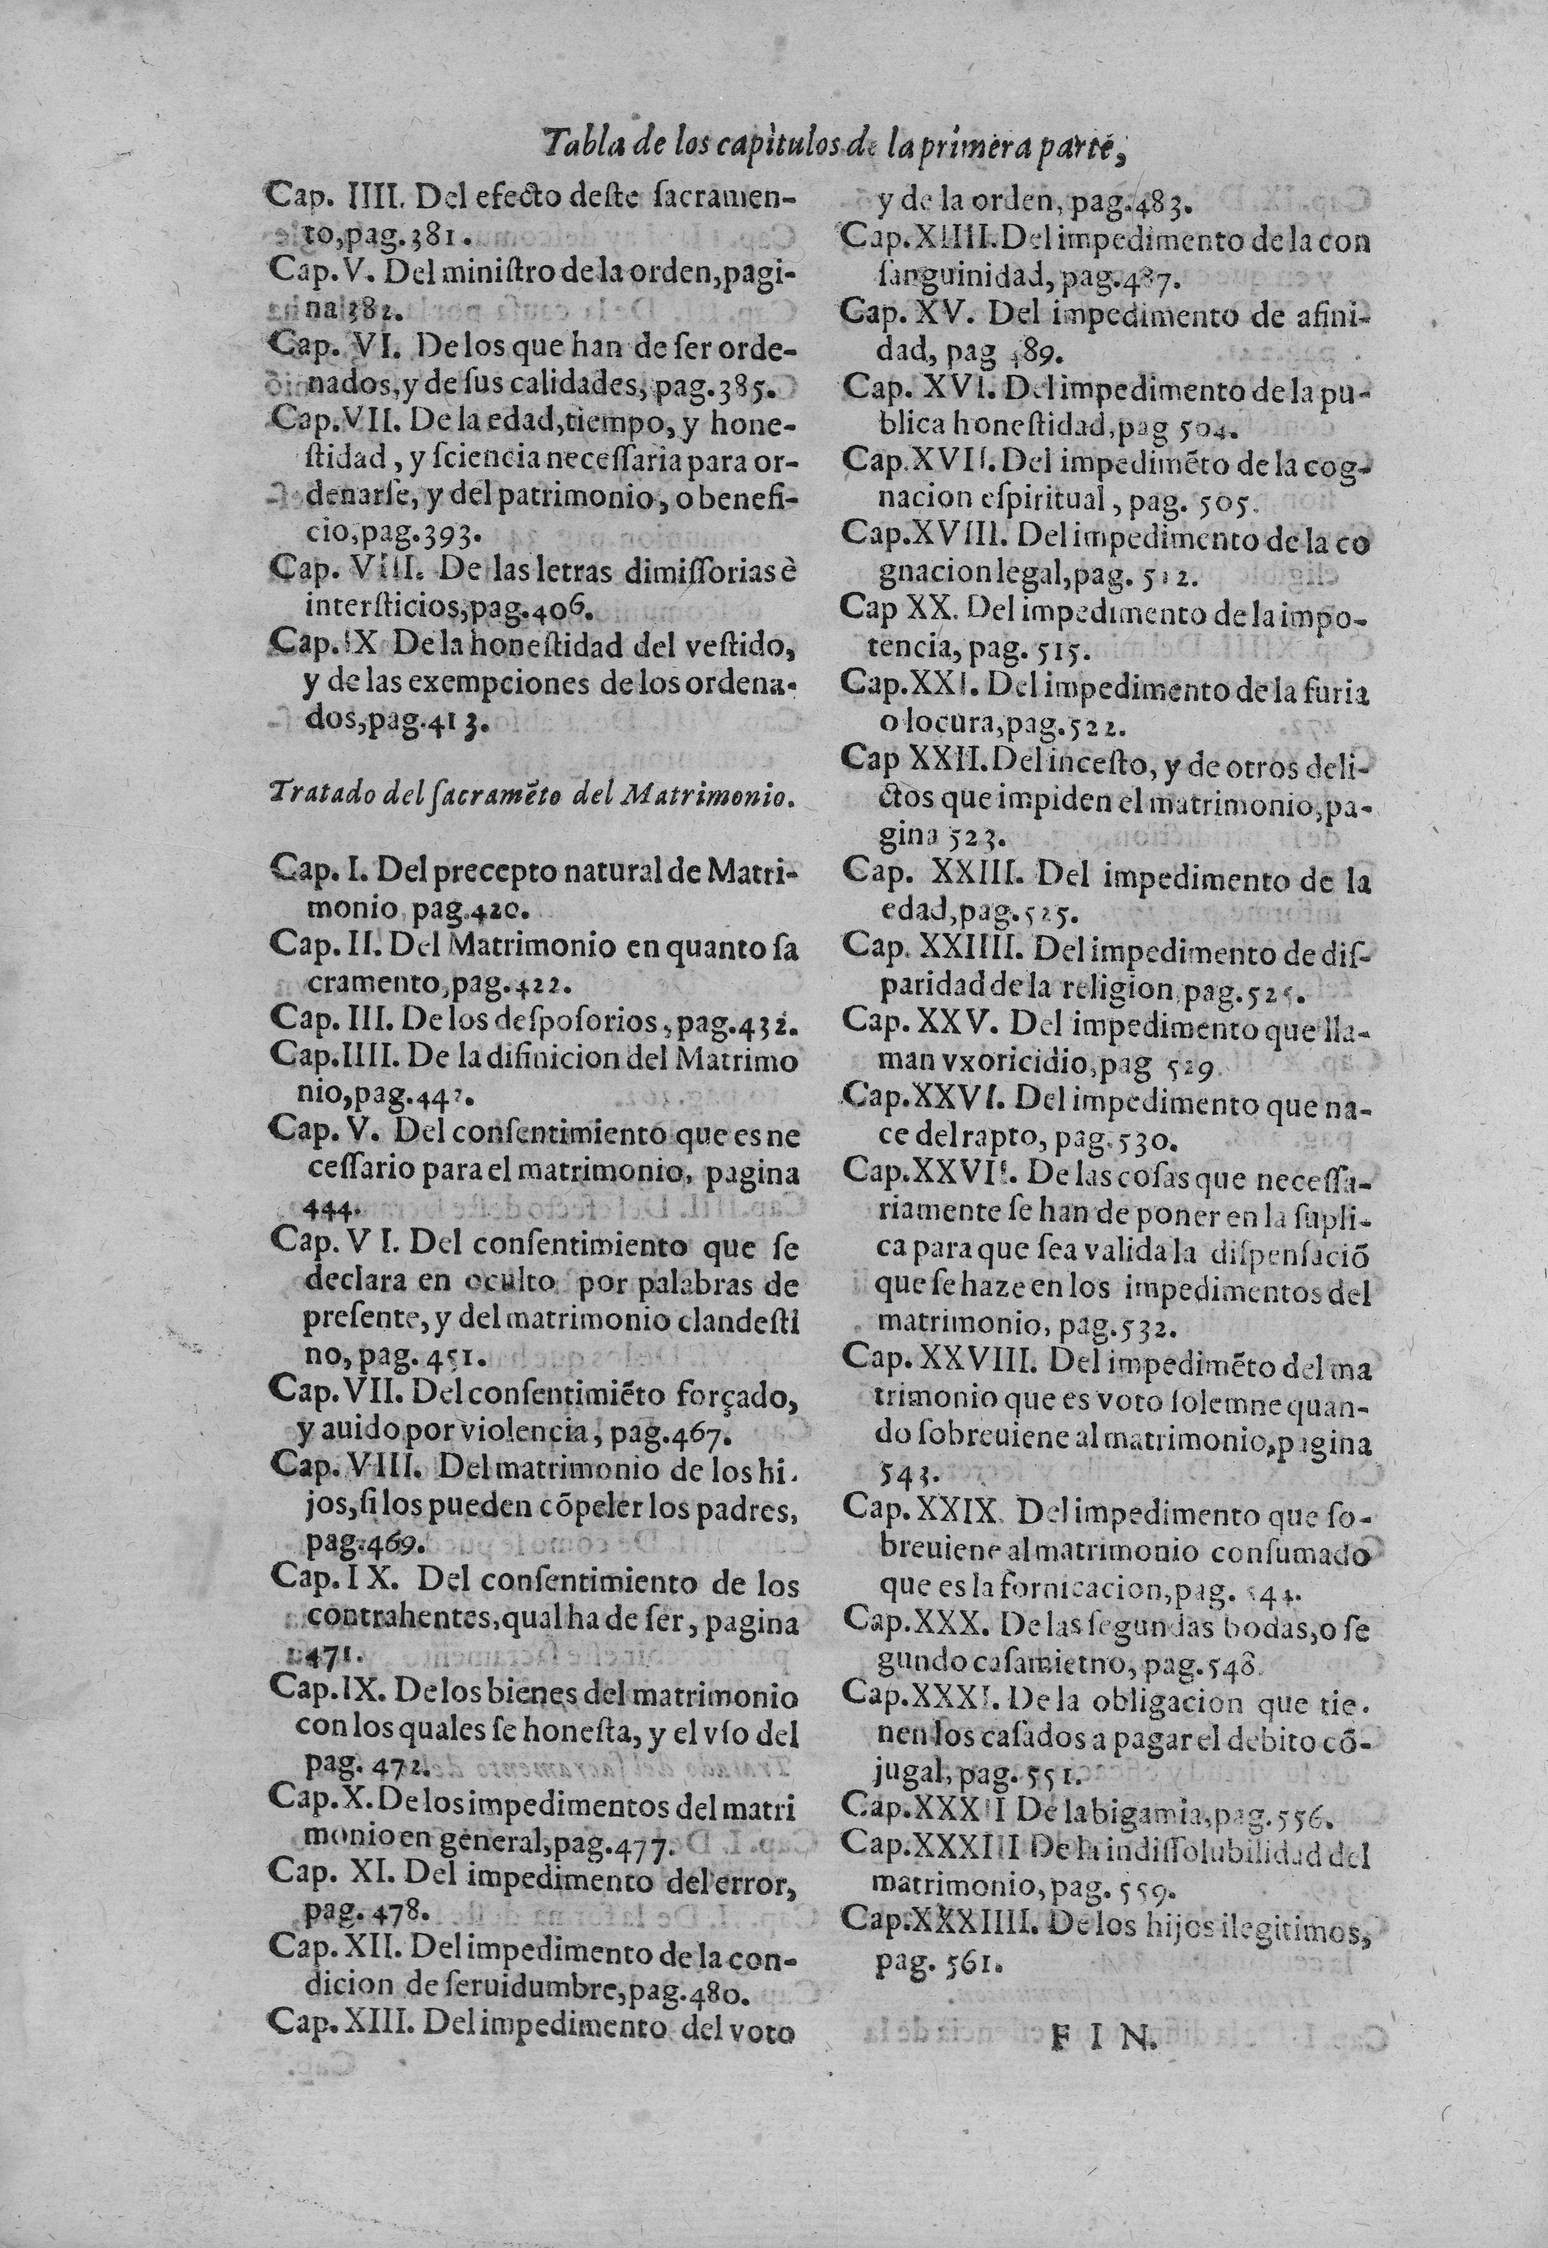 Tabla de los capitulos de la primera parte,
Cap. IIII. Del efecto deste sacramen-
to,pag.381.
Cap. V. Del ministro de la orden,pagi-
na 382.
Cap. VI. De los que han de ser orde-
nados,y de sus calidades, pag.385.
Cap.VII. De la edad,tiempo, y hone-
stidad, y sciencia necessaria para or-
denarse, y del patrimonio, o benefi-
cio,pag.393.
Cap. VIII. De las letras dimissorias è
intersticios,pag.406.
Cap. IX De la honestidad del vestido,
y de las exempciones de los ordena-
dos,pag.413.
Tratado del sacramẽto del Matrimonio.
Cap. I. Del precepto natural de Matri-
monio pag.420.
Cap. II. Del Matrimonio en quanto sa
cramento,pag.422.
Cap. III. De los desposorios, pag.432.
Cap.IIII. De la difinicion del Matrimo
nio,pag.442.
Cap. V. Del consentimiento que es ne
cessario para el matrimonio, pagina
444.
Cap. VI. Del consentimiento que se
declara en oculto por palabras de
presente, y del matrimonio clandesti
no, pag. 451.
Cap. VII. Del consentimiẽto forçado,
y auido por violencia, pag.467.
Cap. VIII. Del matrimonio de los hi-
jos,si los pueden cõpeler los padres,
pag.469.
Cap. IX. Del consentimiento de los
contrahentes,qual ha de ser, pagina
471.
Cap. IX. De los bienes del matrimonio
con los quales se honesta, y el vso del
pag. 472.
Cap. X. De los impedimentos del matri
monio en general,pag.477.
Cap. XI. Del impedimento del error,
pag. 478.
Cap. XII. Del impedimento de la con-
dicion de seruidumbre,pag.480.
Cap. XIII. Del impedimento del voto
y de la orden, pag.483.
Cap.XIIII. Del impedimento de la con
sanguinidad, pag.487.
Cap. XV. Del impedimento de afini-
dad, pag 489.
Cap. XVI. Del impedimento de la pu-
blica honestidad,pag 504.
Cap.XVII. Del impedimẽto de la cog-
nacion espiritual, pag. 505.
Cap.XVIII. Del impedimento de la co
gnacion legal,pag. 512.
Cap XX. Del impedimento de la impo-
tencia, pag. 515.
Cap.XXI. Del impedimento de la furia
o locura,pag.522.
Cap XXII. Del incesto, y de otros deli-
ctos que impiden el matrimonio,pa-
gina 523.
Cap. XXIII. Del impedimento de la
edad,pag.525.
Cap. XXIIII. Del impedimento de dis-
paridad de la religion,pag.525.
Cap. XXV. Del impedimento que lla-
man vxoricidio,pag 529
Cap.XXVI. Del impedimento que na-
ce del rapto, pag.530.
Cap.XXVII. De las cosas que necessa-
riamente se han de poner en la supli-
ca para que sea valida la dispensaciõ
que se haze en los impedimentos del
matrimonio, pag.532.
Cap. XXVIII. Del impedimẽto del ma
trimonio que es voto solemne quan-
do sobreuiene al matrimonio,pagina
543.
Cap. XXIX. Del impedimento que so-
breuiene al matrimonio consumado
que es la fornicacion,pag. 544.
Cap.XXX. De las segundas bodas,o se
gundo casamietno, pag.548.
Cap.XXXI. De la obligacion que tie-
nen los casados a pagar el debito cõ-
jugal, pag. 551.
Cap.XXXII De la bigamia,pag.556.
Cap.XXXIII De la indissolubilidad del
matrimonio, pag. 559.
Cap.XXXIIII. De los hijos ilegitimos,
pag. 561.
FIN.